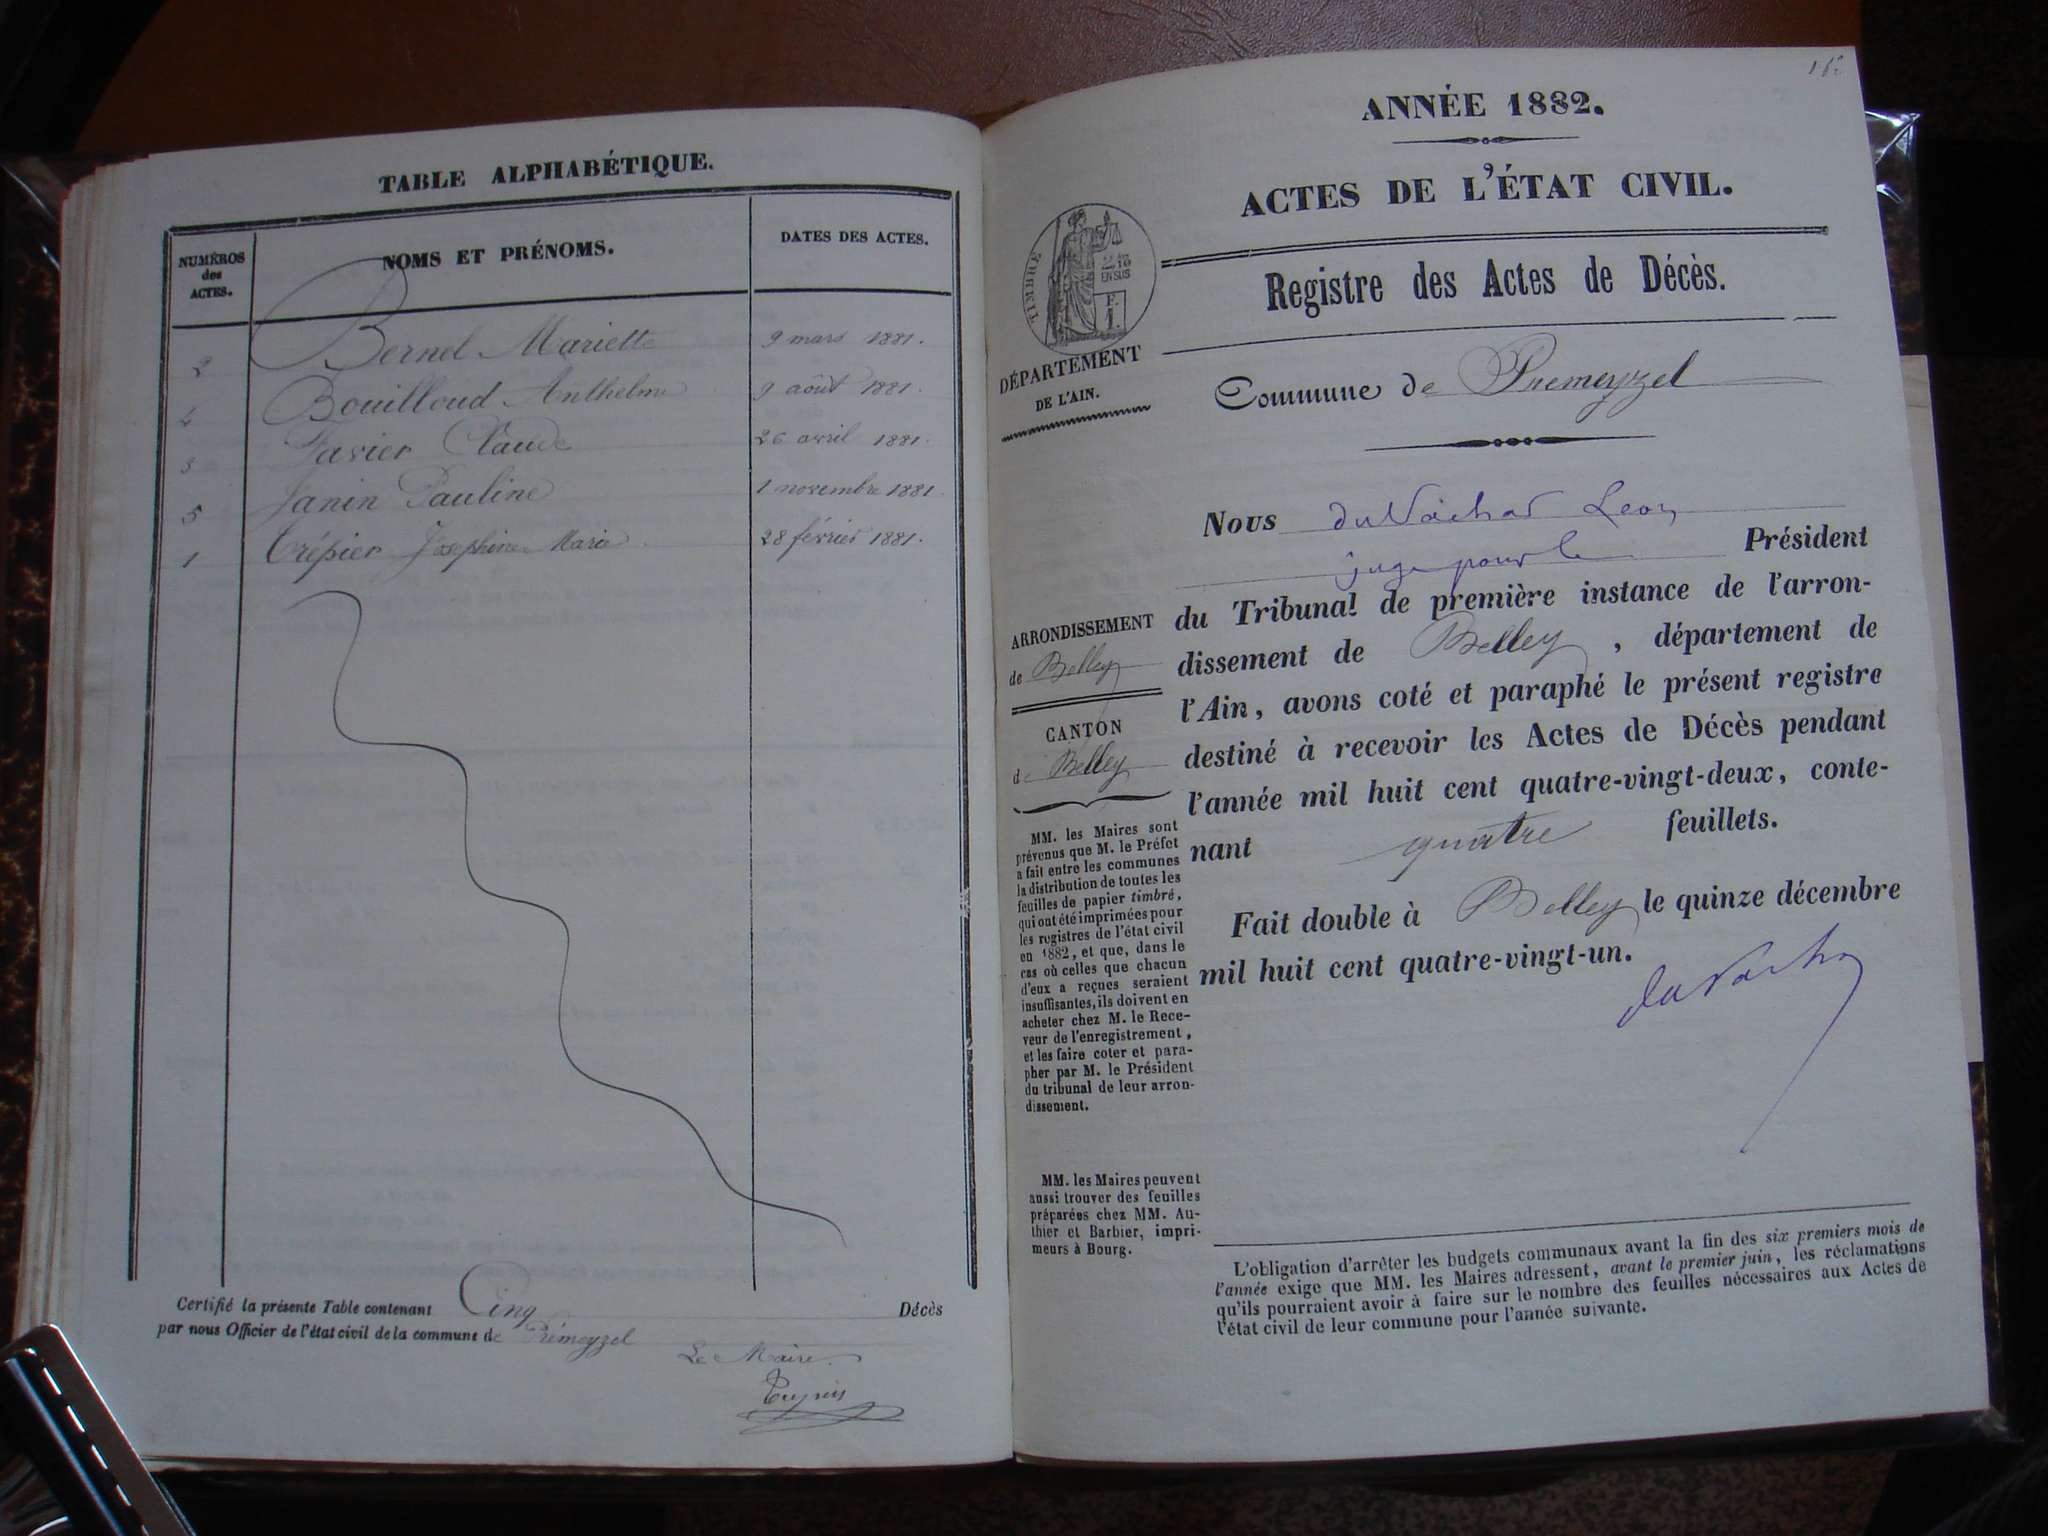 TABLE ALPHABÉTIQUE.
NUMÉROS des ACTES. NOMS ET PRÉNOMS. DATES DES ACTES.
2 Bernel Mariette 9 mars 1881.
4 Bouilloud Anthelme 9 août 1881.
3 Favier Claude 26 avril 1881.
5 Janin Pauline 1 novembre 1881.
1 Trépier Joséphine Marie. 28 février 1881.
Certifié la présente Table contenant Cinq Décès
par nous Officier de l'état civil de la commune de Prémeyzel
Le Maire.
ANNÉE 1882.
ACTES DE L'ÉTAT CIVIL.
TIMBRE
2/10
EN SUS
Registre des Actes de Décès.
DÉPARTEMENT
DE L'AIN.
Commune de Premeyzel
Nous Leon
juge pour le Président
du Tribunal de première instance de l'arron-
dissement de Belley, département de
l'Ain, avons coté et paraphé le présent registre
destiné à recevoir les Actes de Décès pendant
l'année mil huit cent quatre-vingt-deux, conte-
nant quatre feuillets.
Fait double à Belley le quinze décembre
mil huit cent quatre-vingt-un.
ARRONDISSEMENT
de Belley
CANTON
de Belley
MM. les Maires sont
prévenus que M. le Préfet
a fait entre les communes
la distribution de toutes les
feuilles de papier timbré,
qui ont été imprimées pour
les registres de l'état civil
en 1882, et que, dans le
cas où celles que chacun
d'eux a reçues seraient
insuffisantes, ils doivent en
acheter chez M. le Rece-
veur de l'enregistrement,
et les faire coter et para-
pher par M. le Président
du tribunal de leur arron-
dissement.
MM. les Maires peuvent
aussi trouver des feuilles
préparées chez MM. Au-
thier et Barbier, impri-
meurs à Bourg.
L'obligation d'arrêter les budgets communaux avant la fin des six premiers mois de
l'année exige que MM. les Maires adressent, avant le premier juin, les réclamations
qu'ils pourraient avoir à faire sur le nombre des feuilles nécessaires aux Actes de
l'état civil de leur commune pour l'année suivante.